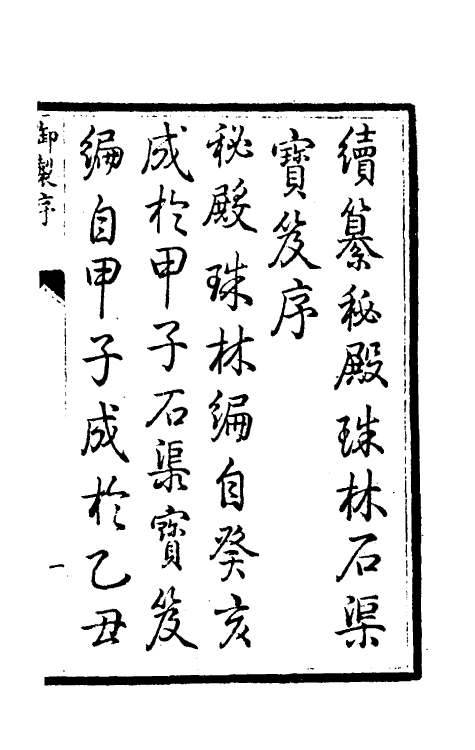 續纂秘殿珠林石渠
寶笈序
秘殿珠林編自癸亥
成於甲子石渠寶笈
編自甲子成於乙丑
御製序
一